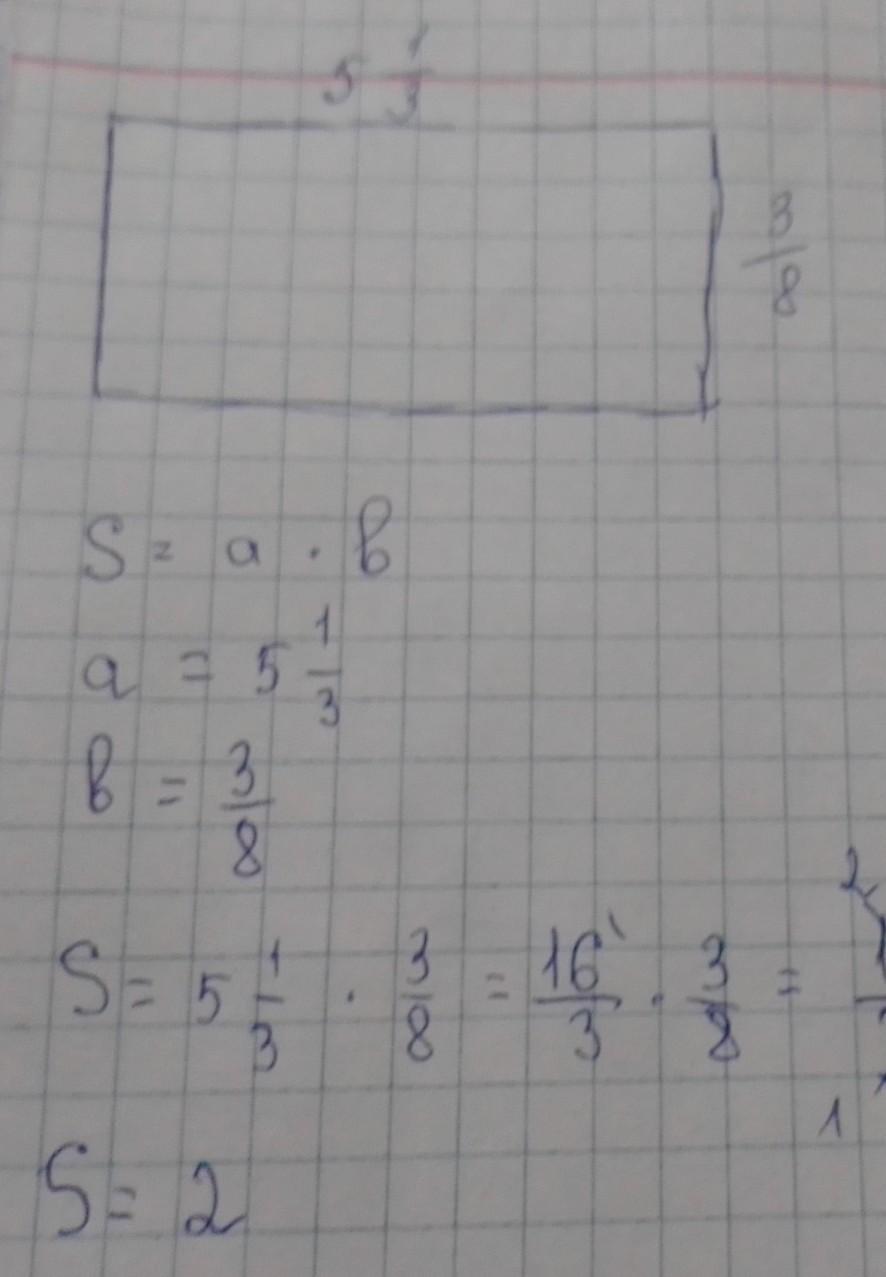 5 1/3
3/8
S = a · b
a = 5 1/3
b = 3/8
S = 5 1/3 · 3/8 = 16/3 · 3/8 =
2
1
S = 2